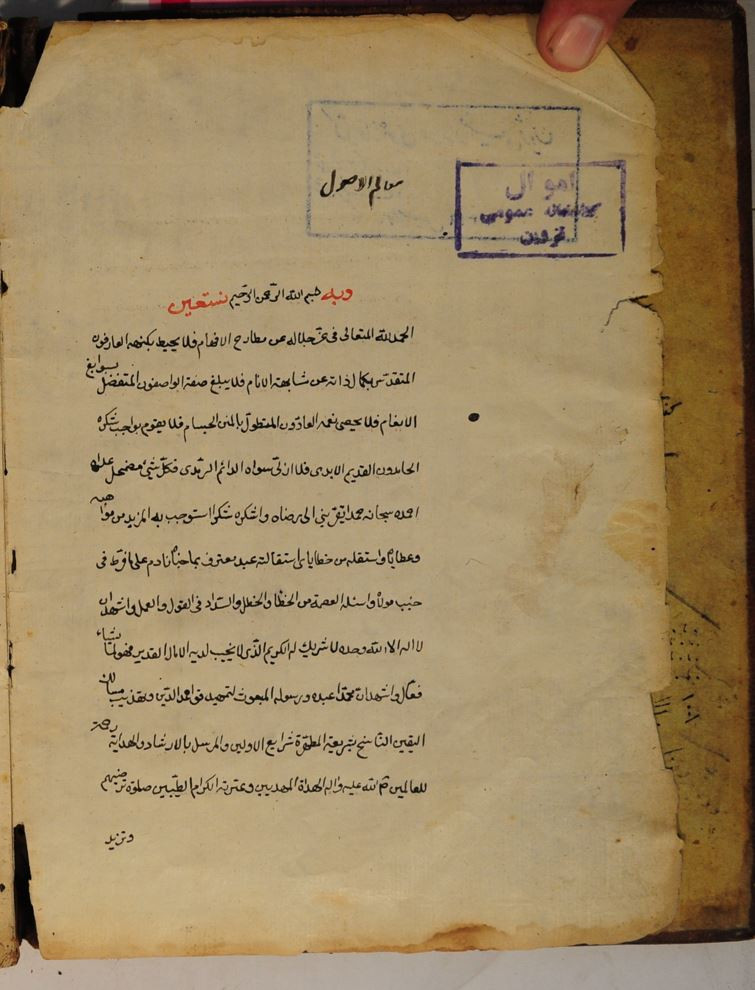 معالم الاصول
اموال
کتابخانه عمومی
قزوین
وبه بسم الله الرحمن الرحیم نستعین
الحمد لله المتعالی فی عز جلاله عن مطارح الافهام فلا یحیط بکنهه العارفون
المتقدس بکمال ذاته عن مشابهة الانام فلا یبلغ صفته الواصفون المتفضل بسوابغ
الانعام فلا یحصی نعمه العادّون المتطول بالمنن الجسام فلا یقوم بواجب شکره
الحامدون القدیم الابدی فلا ازلی سواه الدائم السرمدی فکل شیء مضمحل عداه
احمده سبحانه حمدا یقربنی الی رضاه واشکره شکرا استوجب به المزید من مواهبه
وعطایاه واستقیله من خطایای استقالة عبد معترف بما جناه نادم علی ما فرط فی
جنب مولاه واسئله العصمة من الخطأ والخطل والسداد فی القول والعمل واشهد ان
لا اله الا الله وحده لا شریك له الکریم الذی لا یخیب لدیه الامال القدیر فهو لما یشاء
فعال واشهد ان محمدا عبده ورسوله المبعوث لتمهید قواعد الدین وتهذیب مسالك
الیقین الناسخ بشریعته المطهرة شرایع الاولین والمرسل بالارشاد والهدایة رحمة
للعالمین صلی الله علیه واله الهداة المهدیین وعترته الکرام الطیبین صلوة ترضیهم
وتزید